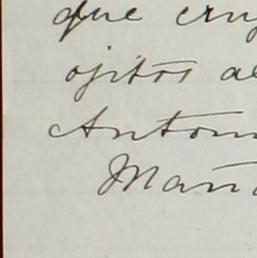 que cruz
ojitos al
Antoni
Man